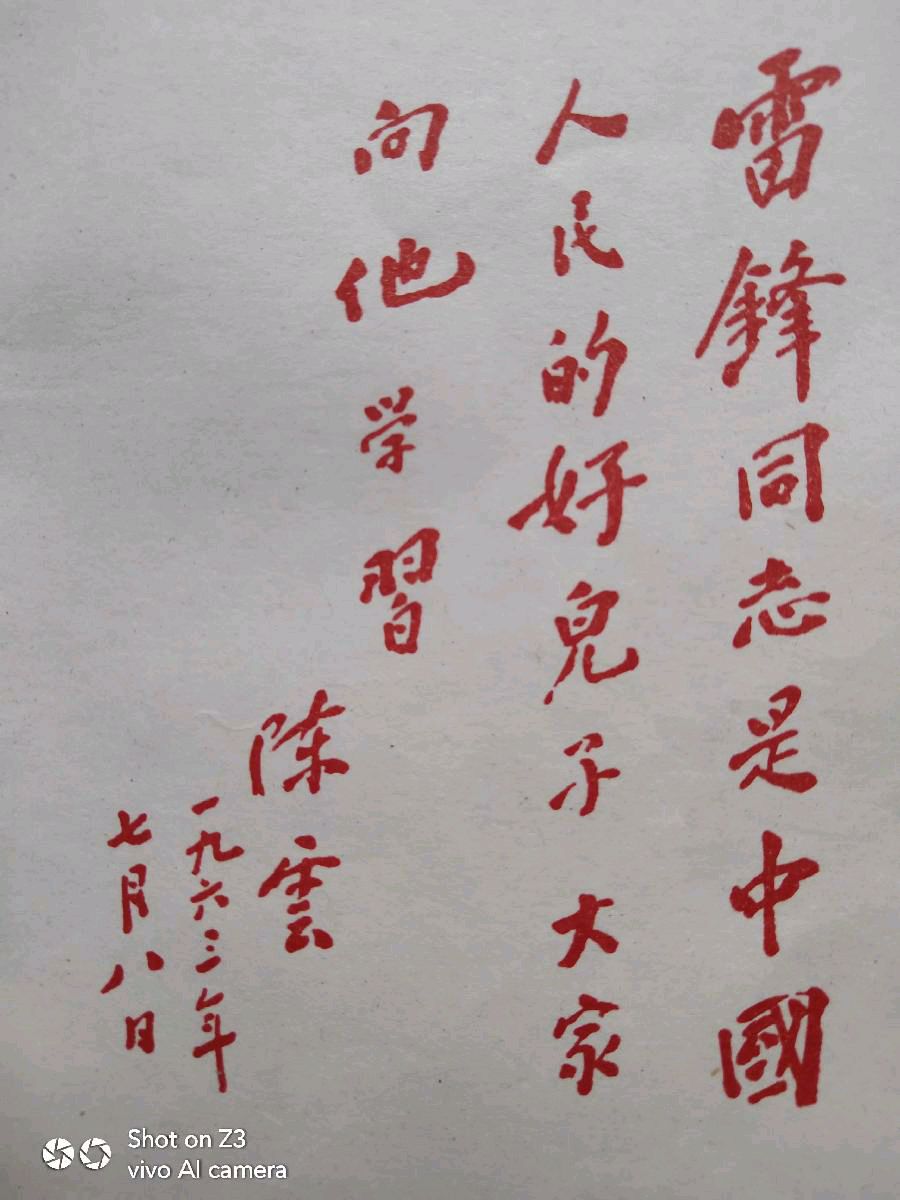 雷鋒同志是中國
人民的好兒子大家
向他学習
陈雲
一九六三年
七月八日
Shot on Z3
vivo AI camera